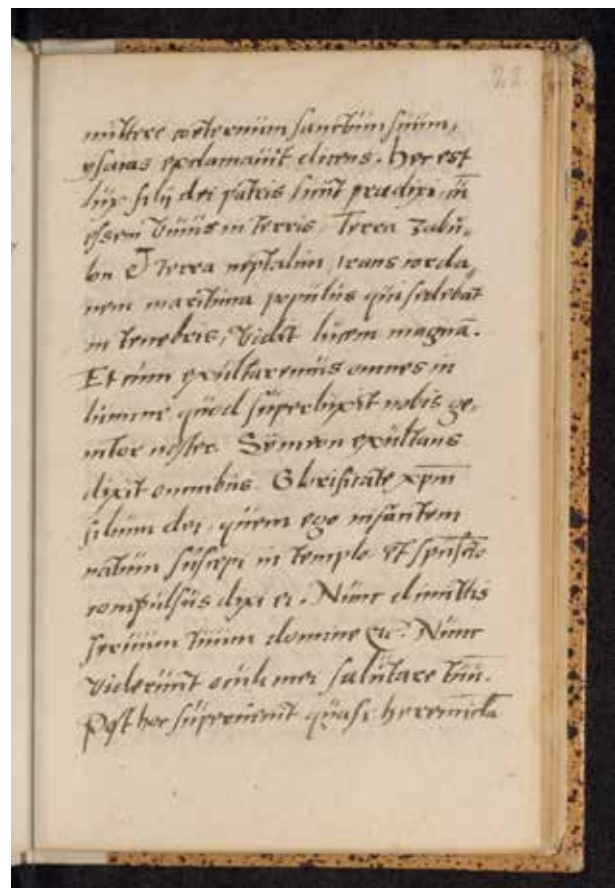 22
mittere coeternum sanctum suum,
ysaias exclamauit dicens. Hec est
lux filii dei patris sicut prædixi, cū
essem viuus in terris. Terra zabu,
lon & terra neptalim, trans iorda,
nem maritima populus qui sedebat
in tenebris, vidit lucem magnā.
Et cum exultaremus omnes in
lumine, quod superluxit nobis ge,
nitor noster. Symeon exultans
dixit omnibus. Glorificate xp̄m
filium dei, quem ego infantem
natum suscepi in templo et spū sc̄to
compulsus dixi ei. Nunc dimittis
seruum tuum domine &c. Nunc
viderunt oculi mei salutare tuū.
Post hec superuenit quasi heremicola